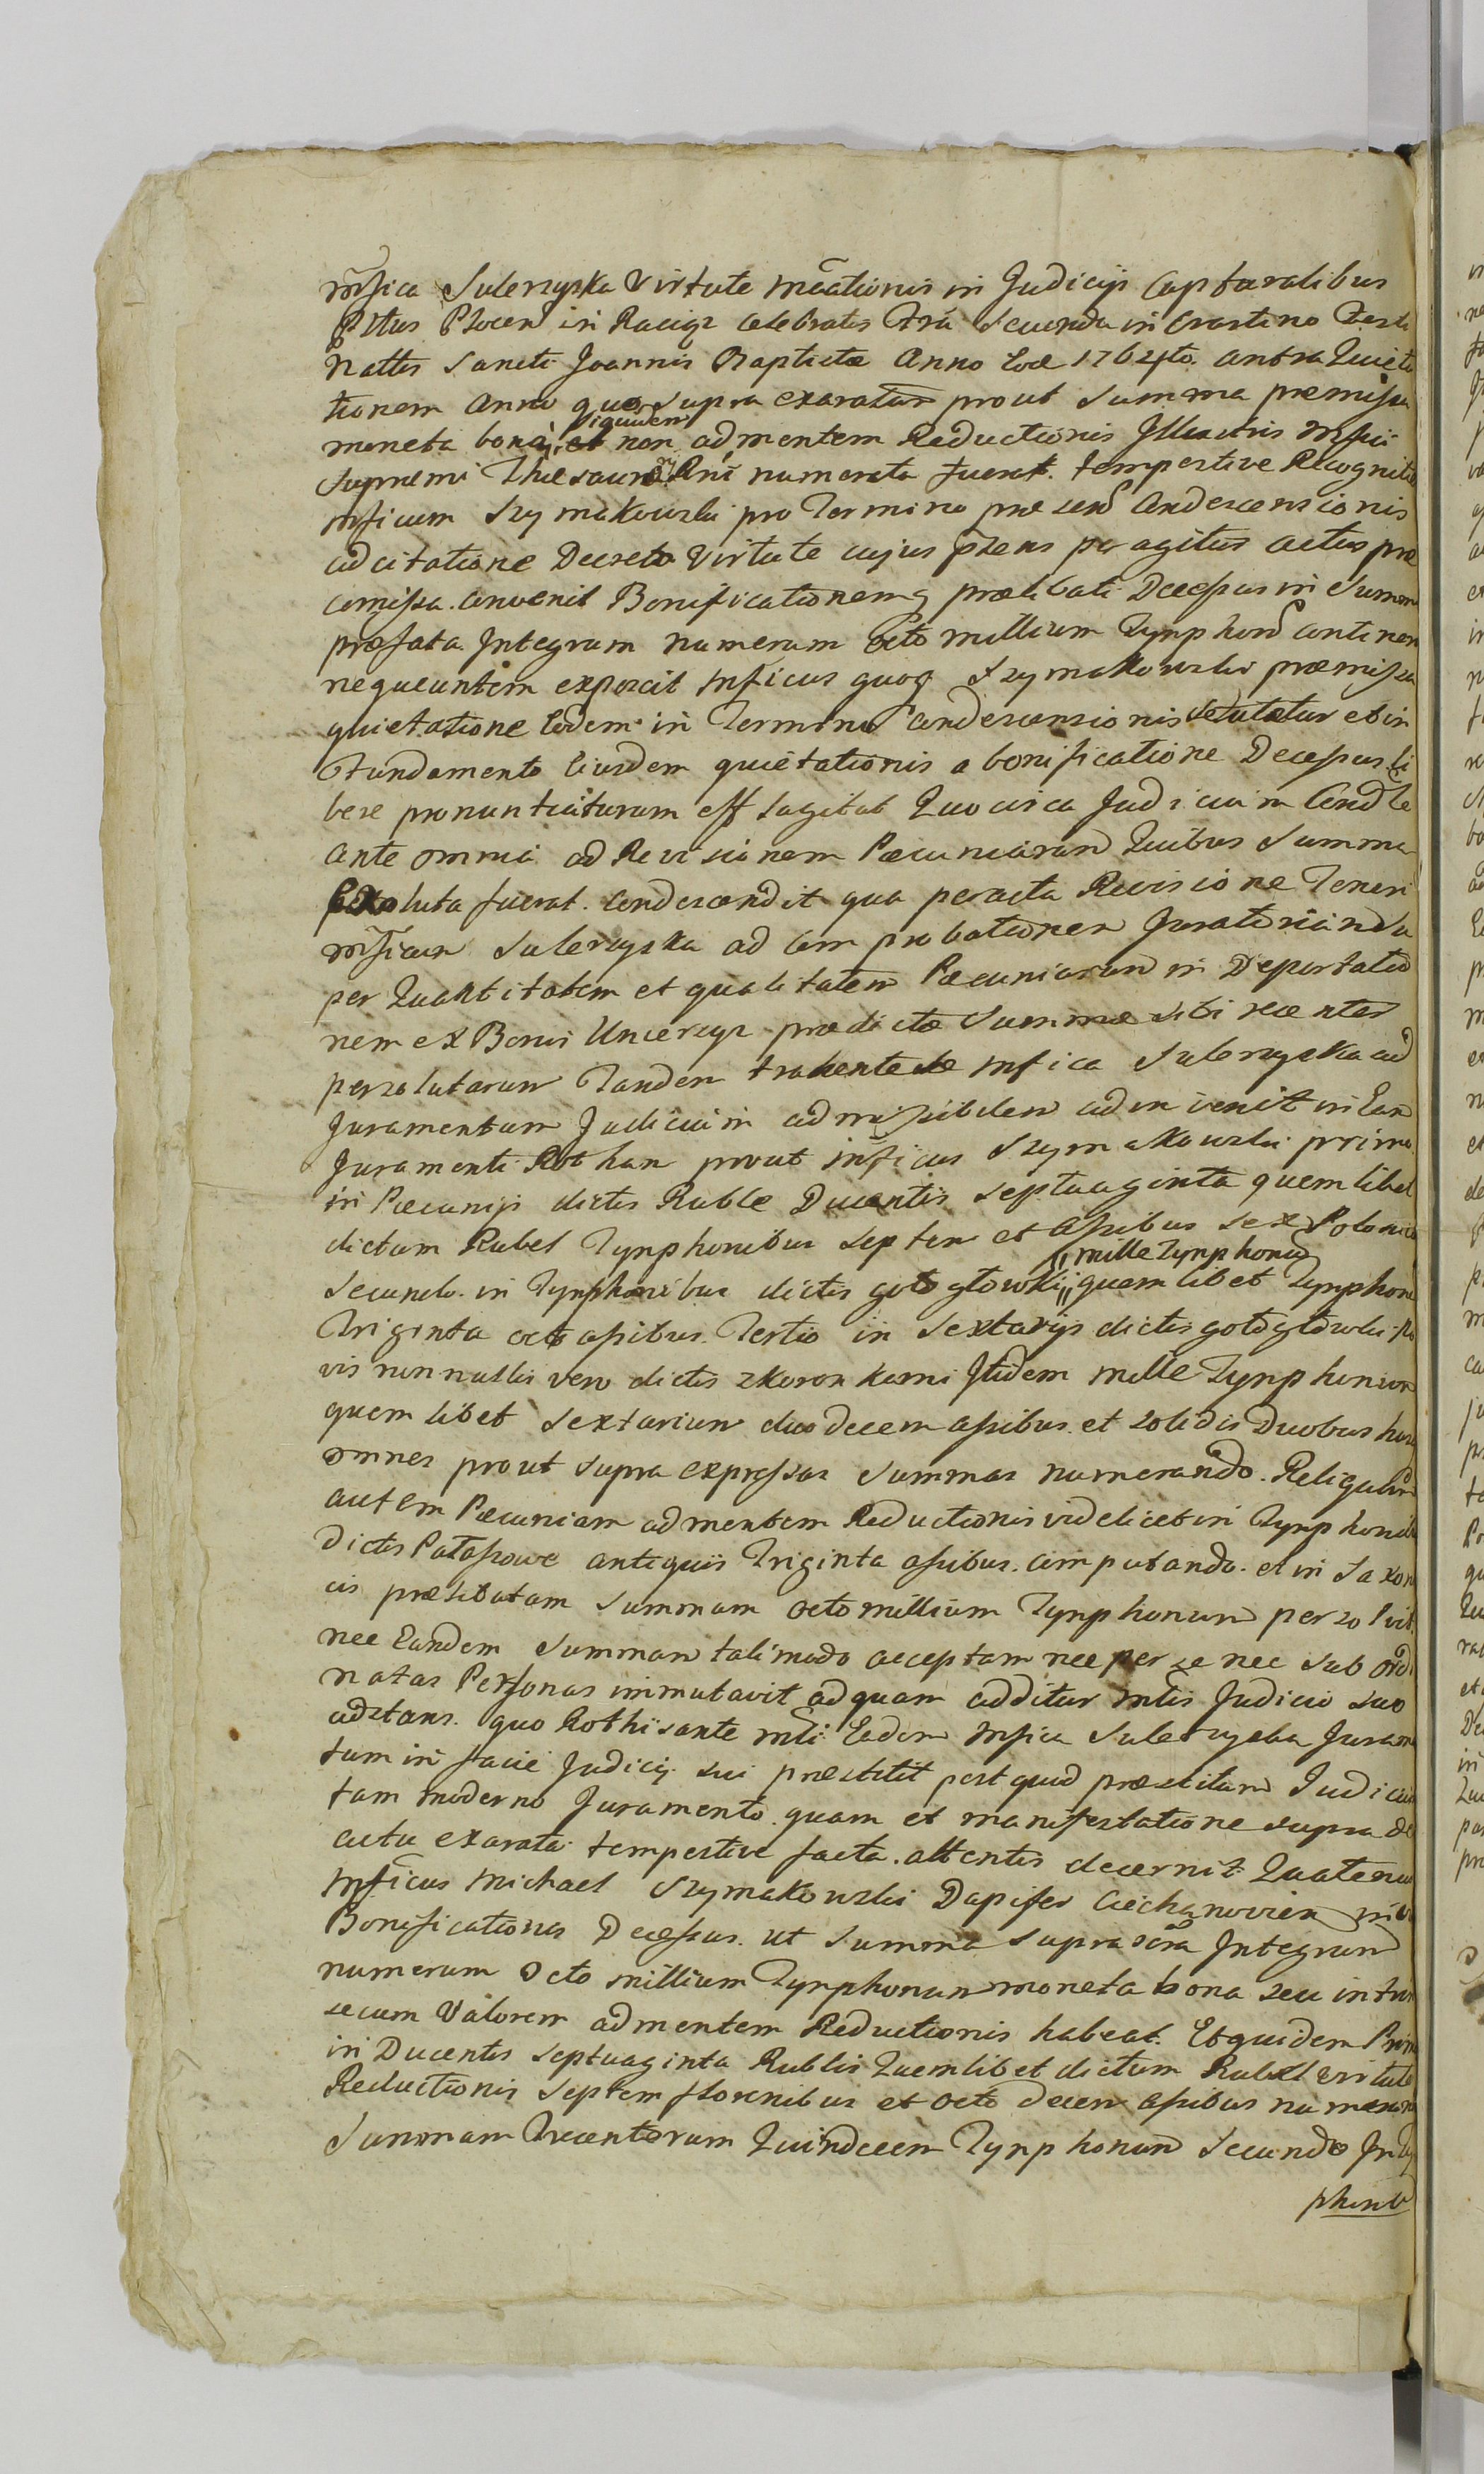 Mfica Sulerzyska Virtute Mãationis in Judicijs Capturalibus
Pttus Plocen in Raciąz celebratis Fria Secunda in Crastino Festi
Nattis Sancti Joannis Baptistæ Anno Eod 176
tionem Anno quo supra exaratum prout Summa premissa
moneta bona, et non ad mentem Reductionis Illustris Mfici
siquidem
Supremi Thesaurarii Rni numerata fuerat. tempestive Recognito
Mficum Szymakowski pro Termino præsen Condescensionis
adcitatione Decreto Virtute cujus præsens peragitur actus præ
comissa. convenit Bonificationemq prælibati Decessus in Summa
præfata Integrum numerum octo millium Tynphon continen
nequeuntem exposcit Mficus quoq Szymakowski præmissa
quietatione Eodem in Termino Condescensionis se tutatur et in
Fundamento Ejusdem quietationis a bonificatione Decessus li
bere pronuntiaturum esse sagitat Quocirca Judicium Condle
ante omnia ad Revisionem Pæcuniarum Quibus Summa
Exoluta fuerat. Condescendit qua peracta Revisione Teneri
Mficam Sulerzyska ad Comprobationem Juratoriam su
per Quantitatem et qualitatem Pæcuniarum in Deportatio
nem ex Bonis Uncerzyz prædictæ Summæ sibi recenter
persolutarum Tandem trahente se Mfica Sulerzyska ad
Juramentum Judicium admissibilem adinvenit in Eam
Juramenti Rotham prout Mficus Szymakowski primo
in Pæcunijs dictis Ruble Ducentis septuaginta quemlibet
dictum Rubel Tynphonibus septem et assibus sex Polonica
Secundo in Tynphonibus dictis gołogłowki, quemlibet Tynphon
mille Tynphonis
Triginta octo assibus. Tertio in Sextarijs dictis gołogłowki no
vis nonnullis vero dictis zkoronkami Itidem mille Tynphonum
quemlibet Sextarium duodecem assibus. et solidis Duobus hasce
omnes prout supra expressas Summas numerando. Reliquam
autem Pæcuniam ad mentem Reductionis videlicet in Tynphonib
dictis Pałaszowe antiquis Triginta assibus. computando. et in Saxoni
cis prælibatam Summam octo millium Tynphonum persolvit.
nec Eandem Summam tali modo acceptam nec per se nec subordi
natas Personas immutavit ad quam additur Mlis Judicio suo
adstans. quo Rothisante Mli Eadem Mfica Sulerzyska Juramen
tum in facie Judicij sui præstitit post quod præstitum Judicium
tam moderno Juramento quam et manifestatione supra de
actu exarata tempestive facta. attentis decernit. Quatenus
Mficus Michael Szymakowski Dapifer Ciechanovien
Bonificationis Decessus. ut Summa suprascra Integrum
numerum Octo millium Tynphonum moneta bona seu intrin
secum Valorem ad mentem Reductionis habeat. Et quidem Primo
in Ducentis septuaginta Rublis Quemlibet dictum Rubel virtute
Reductionis septem florenibus et octodecem assibus numeran
Summam Trecentorum Quindecem Tynphonum Secundo In Ty
phonib